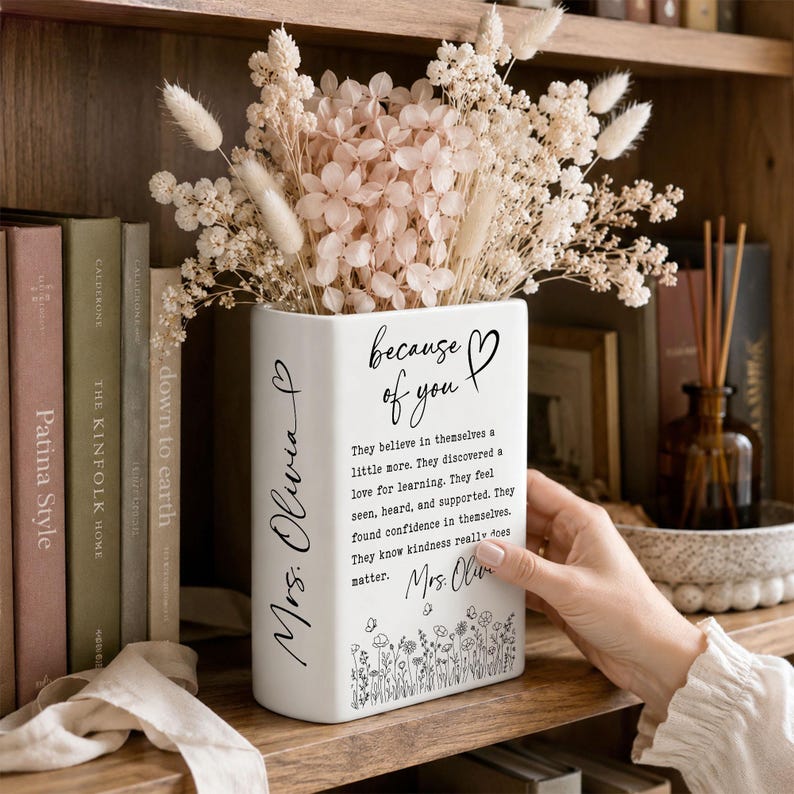 Patina Style
CALDERONE
THE KINFOLK HOME
CALDERONE
down to earth
Mrs. Olivia
because
of you
They believe in themselves a
little more. They discovered a
love for learning. They feel
seen, heard, and supported. They
found confidence in themselves.
They know kindness really does
matter.
Mrs. Olivia